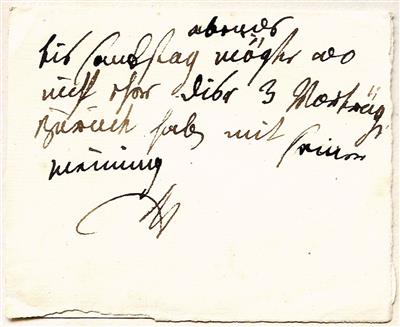 abends
bis samstag möchte wo
nicht eher diese 3 Vorträg
zurück haben mit seiner
meinung